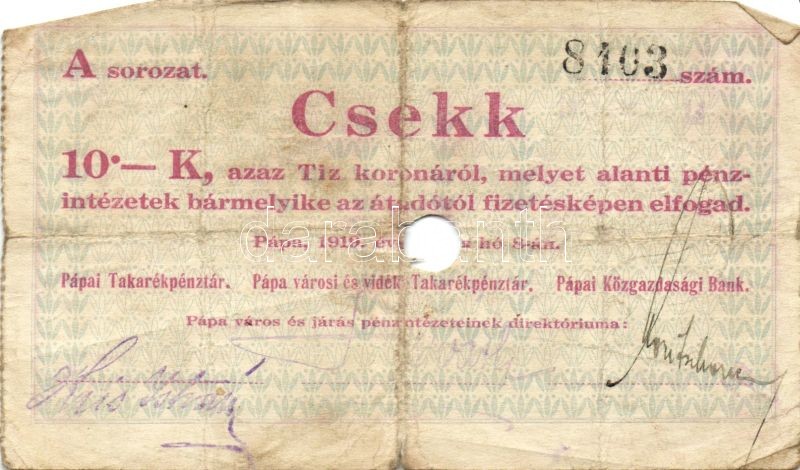 A sorozat. 8103 szám.
Csekk
10·— K, azaz Tiz koronáról, melyet alanti pénz-
intézetek bármelyike az átadótól fizetésképen elfogad.
Pápa, 1919. év hó 8-án.
Pápai Takarékpénztár. Pápa városi és vidéki Takarékpénztár. Pápai Közgazdasági Bank.
Pápa város és járás pénzintézeteinek direktóriuma:
István